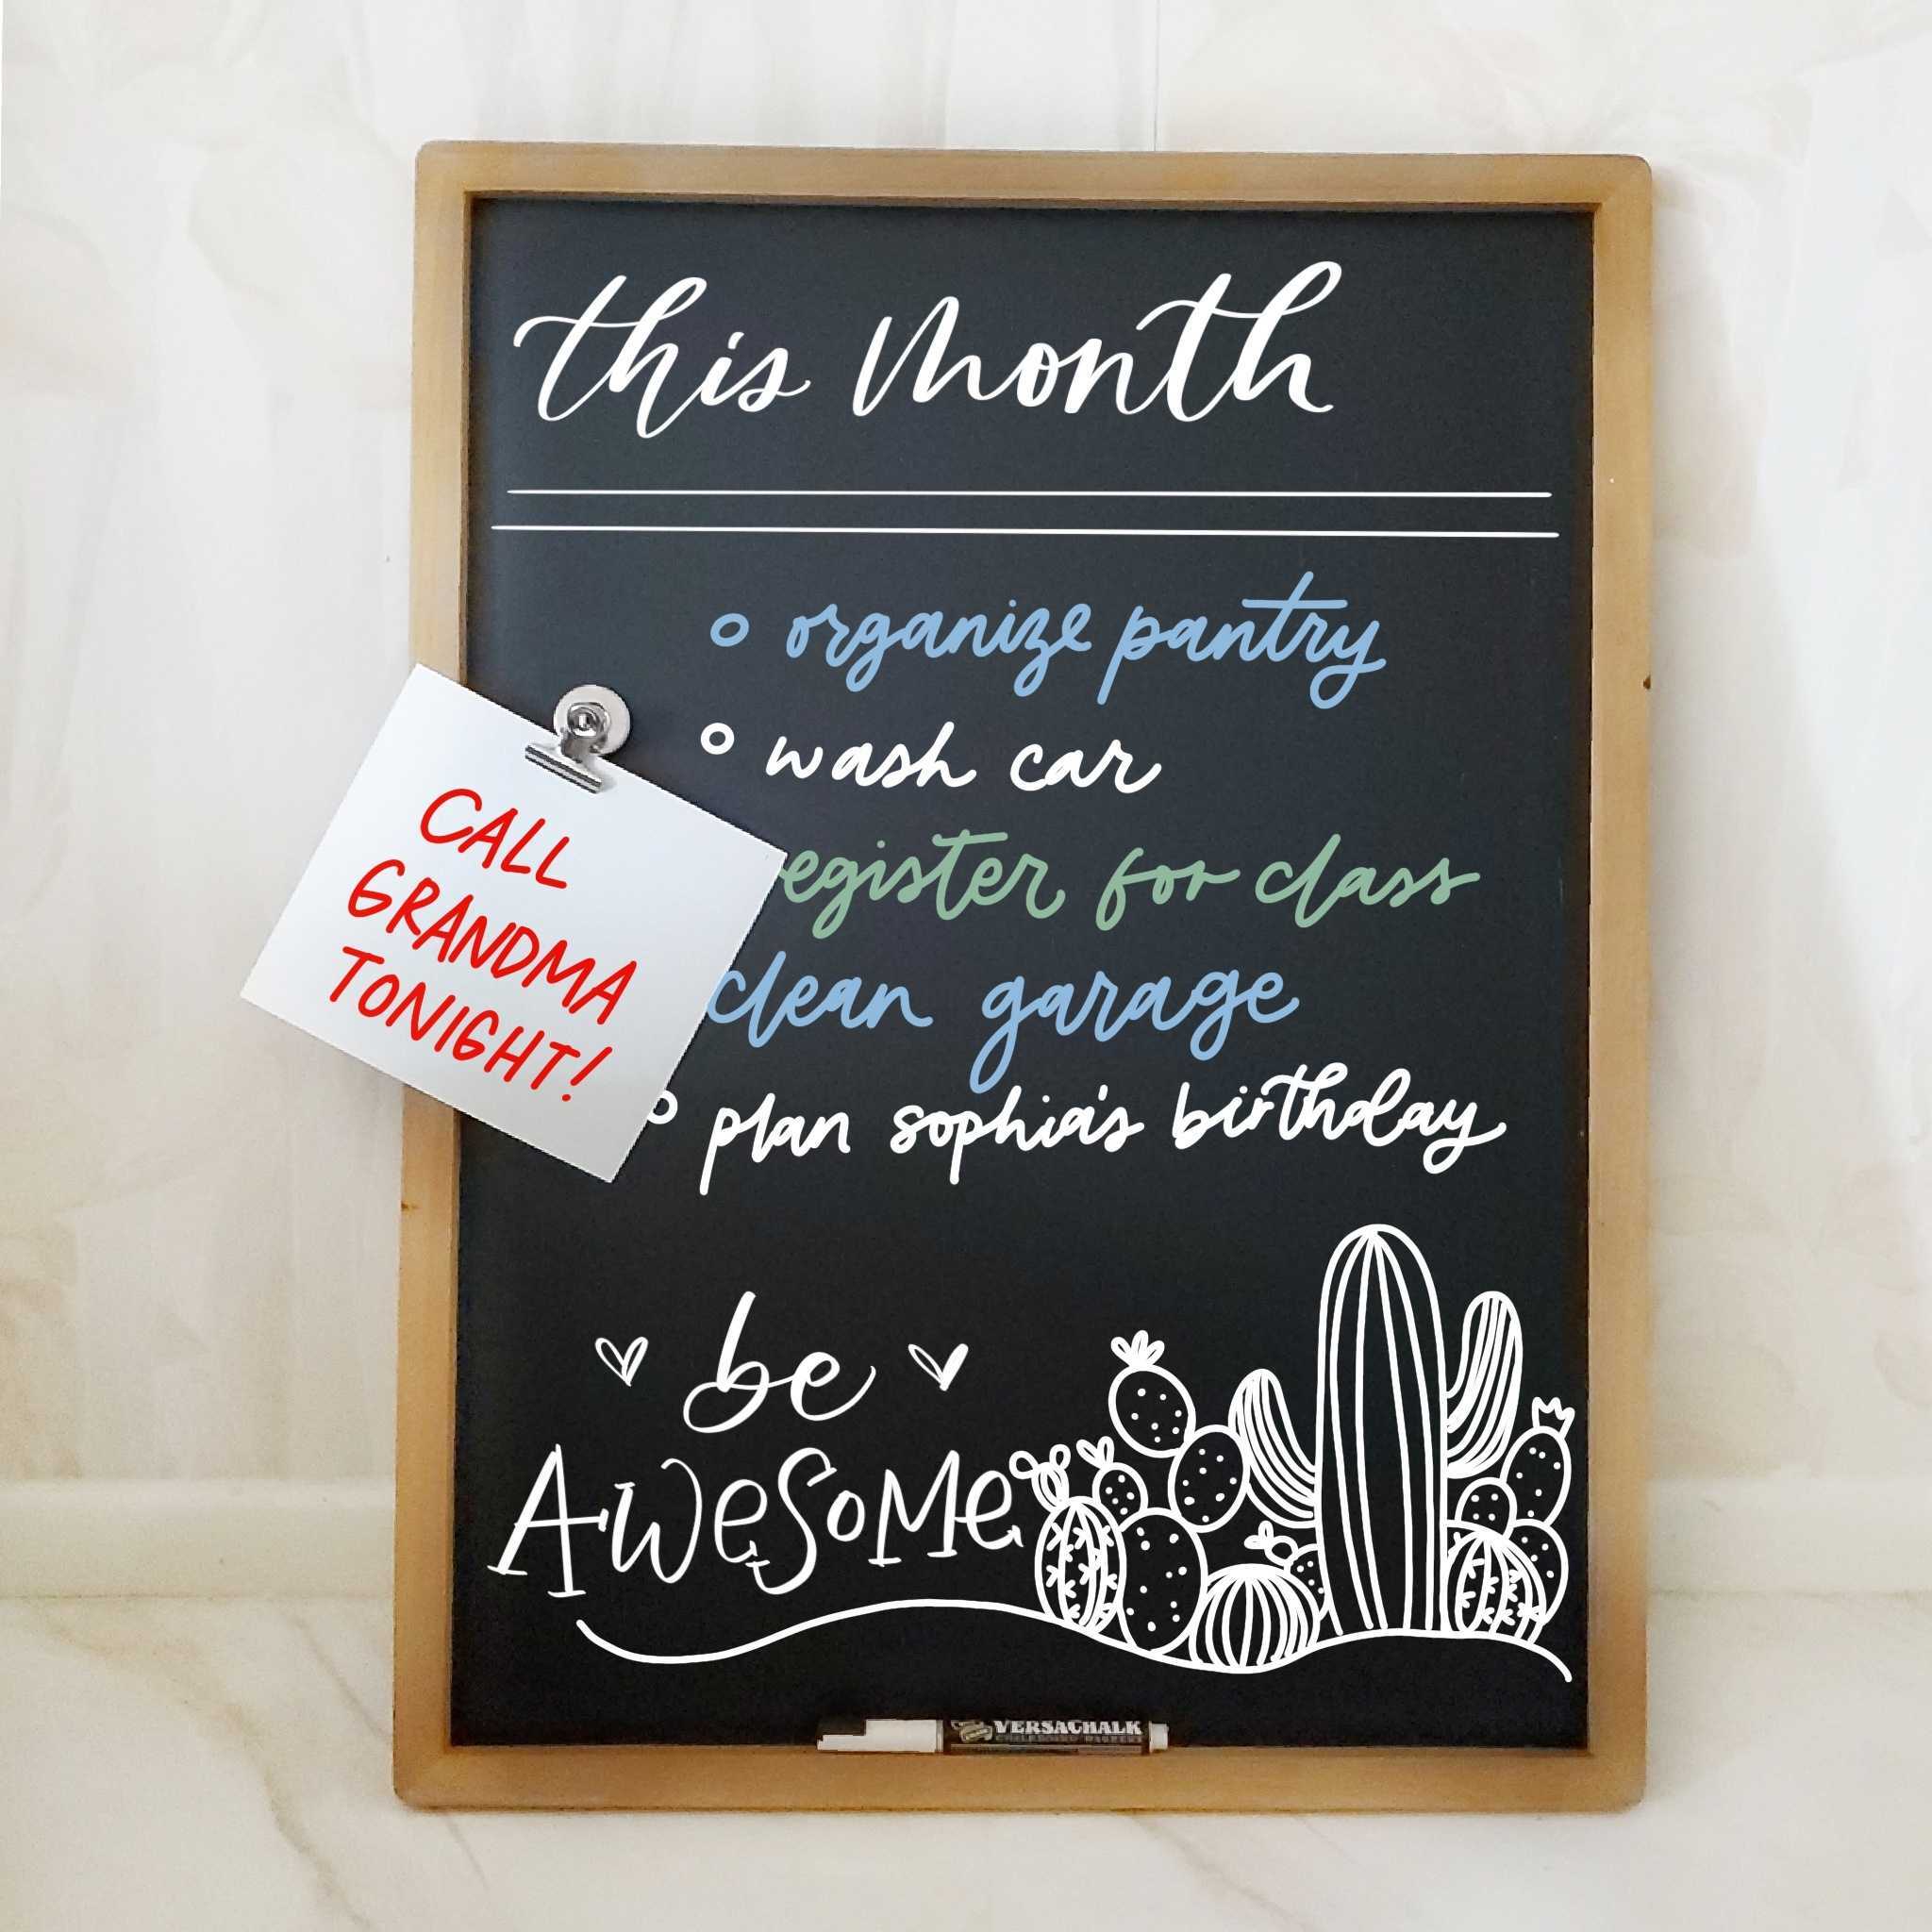 this month
o organize pantry
o wash car
egister for class
clean garage
o plan sophia's birthday
CALL
GRANDMA
TONIGHT!
be
AWESOME
VERSACHALK
CHALKBOARD MARKERS